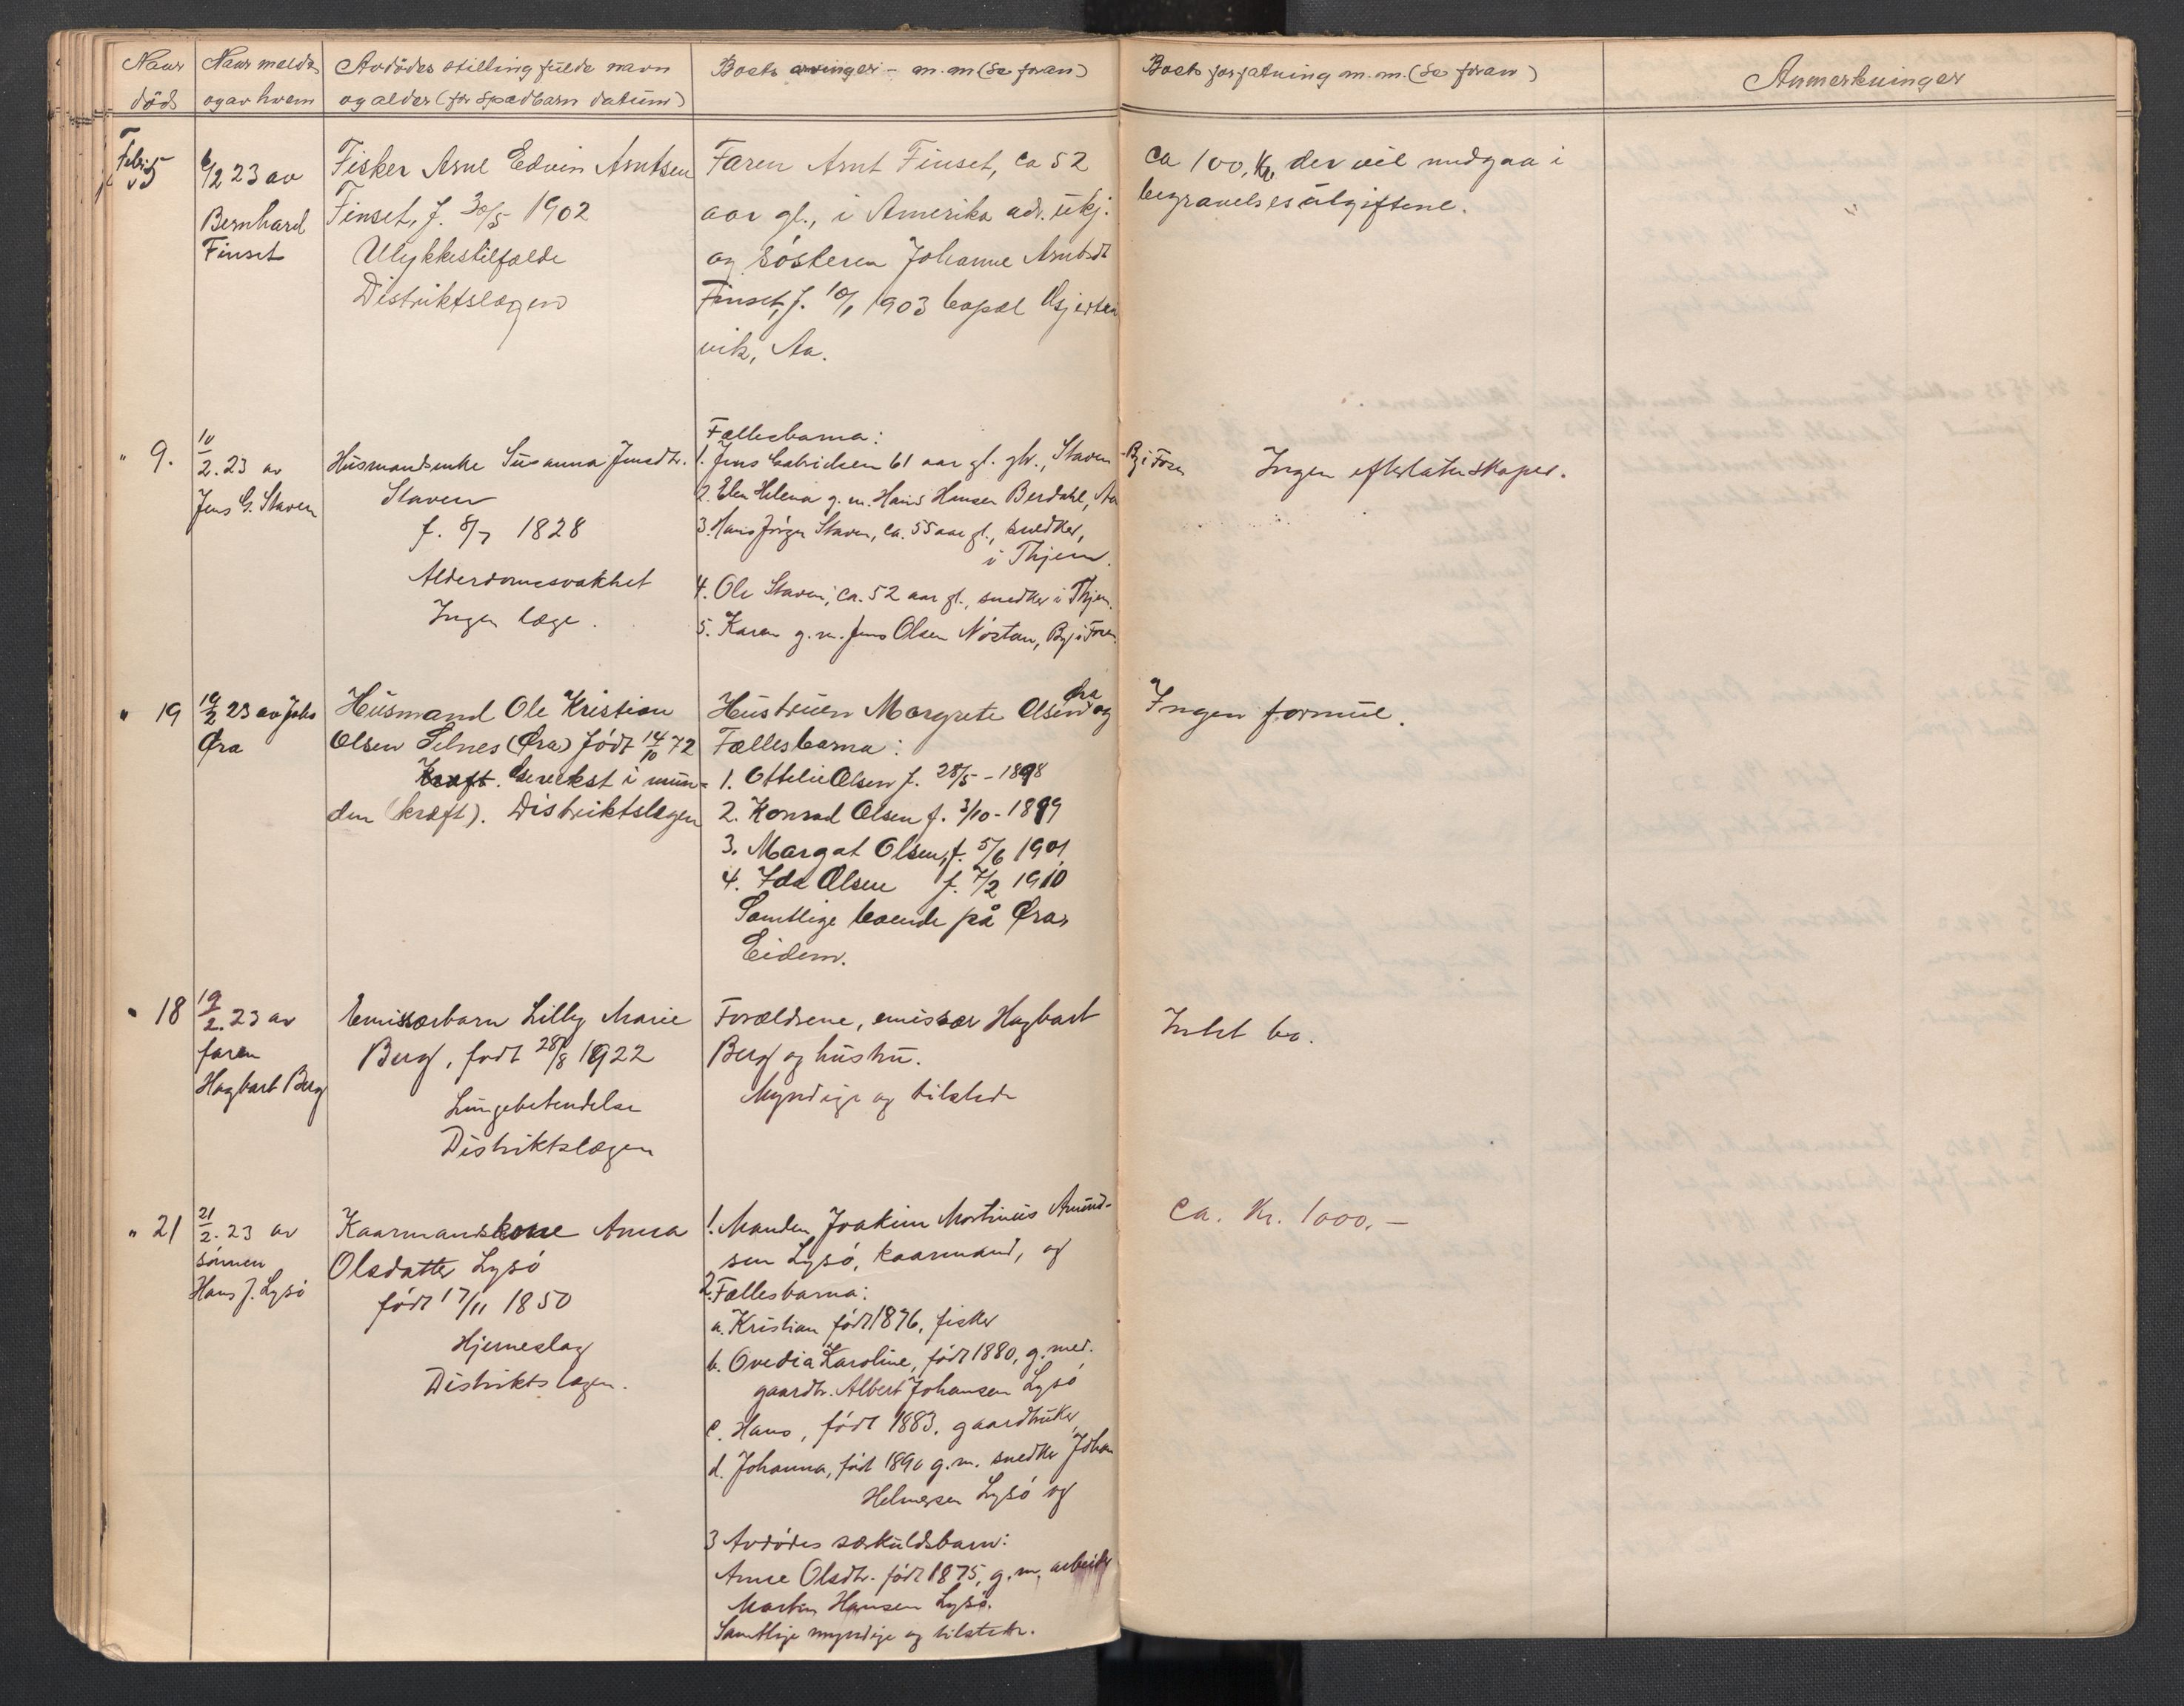 Naar død
Naar meldt og av hvem
Avdødes stilling fulde navn og alder (for spædbarn datum)
Boets arvinger - m.m (se foran)
Boets forfatning m.m. (se foran)
Anmerkninger
Febr. 5
6/2 23 av
Bernhard
Finset
Fisker Arne Edvin Arntsen
Finset, f. 30/5 1902
Ulykkestilfælde
Distriktslægen
Faren Arnt Finset, ca 52
aar gl., i Amerika adr. ukj.
og søsteren Johanne Arntsdt
Finset, f. 10/1 1903
vik, Aa.
ca 100, Kr, der vil medgaa i
begravelsesutgiftene.
" 9.
10/2. 23 av
Jens G. Staven
Husmandsenke Susanna Jensdtr.
Staven
f. 8/7 1828
Alderdomssvakhet
Ingen læge.
Fællesbarna:
1. Jens Gabrielsen 61 aar gl. gbr., Staven By i Foren
2. Elen Helena g. m. Hans Hansen Berdahl, Aa
3. Hans Jörgen Staven, ca. 55 aar gl., snedker,
i Thjem.
4. Ole Staven, ca. 52 aar gl., snedker i Thjem.
5. Karen g. m. Jens Olsen Nöstan, By i Foren.
Ingen efterlatenskaper.
" 19
19/2 23 av Johs
Øra
Husmand Ole Kristian
Olsen Selnes (Øra) født 14/10 72
Kræft. Gevekst i mun-
den (kræft). Distriktslægen
Hustruen Margrete Olsen Øra og
Fællesbarna:
1. Ottelie Olsen f. 28/5 - 1898
2. Konrad Olsen f. 3/10 - 1899
3. Margat Olsen, f. 5/6 1901
4. Ida Olsen f. 7/2 1910
Samtlige boende på Øra,
Eidem.
Ingen formue.
" 18
19/2. 23 av
faren
Hagbart Berg
Emissærbarn Lilly Marie
Berg, født 28/8 1922
Lungebetendelse
Distriktslægen
Forældrene, emissær Hagbart
Berg og hustru.
Myndige og tilstede
Intet bo.
" 21
21/2. 23 av
sönnen
Hans J. Lysö
Kaarmandskone Anna
Olsdatter Lysö
född 17/11 1850
Hjerneslag
Distriktslægen.
1. Manden Joakim Martinus Amund-
sen Lysö, kaarmand, og
2. Fællesbarna:
a. Kristian född 1876, fisker
b. Ovedia Karoline, född 1880, g. med.
gaardbr. Albert Johansen Lysö
c. Hans, född 1883, gaardbruker
d. Johanna, född 1890 g. m. snedker Johan
Helmersen Lysö og
3 Avdödes særkuldsbarn:
Anne Olsdtr. född 1875, g. m. arbeider
Morten Hansen Lysö.
Samtlige myndige og tilstede.
Ca. Kr. 1000.-